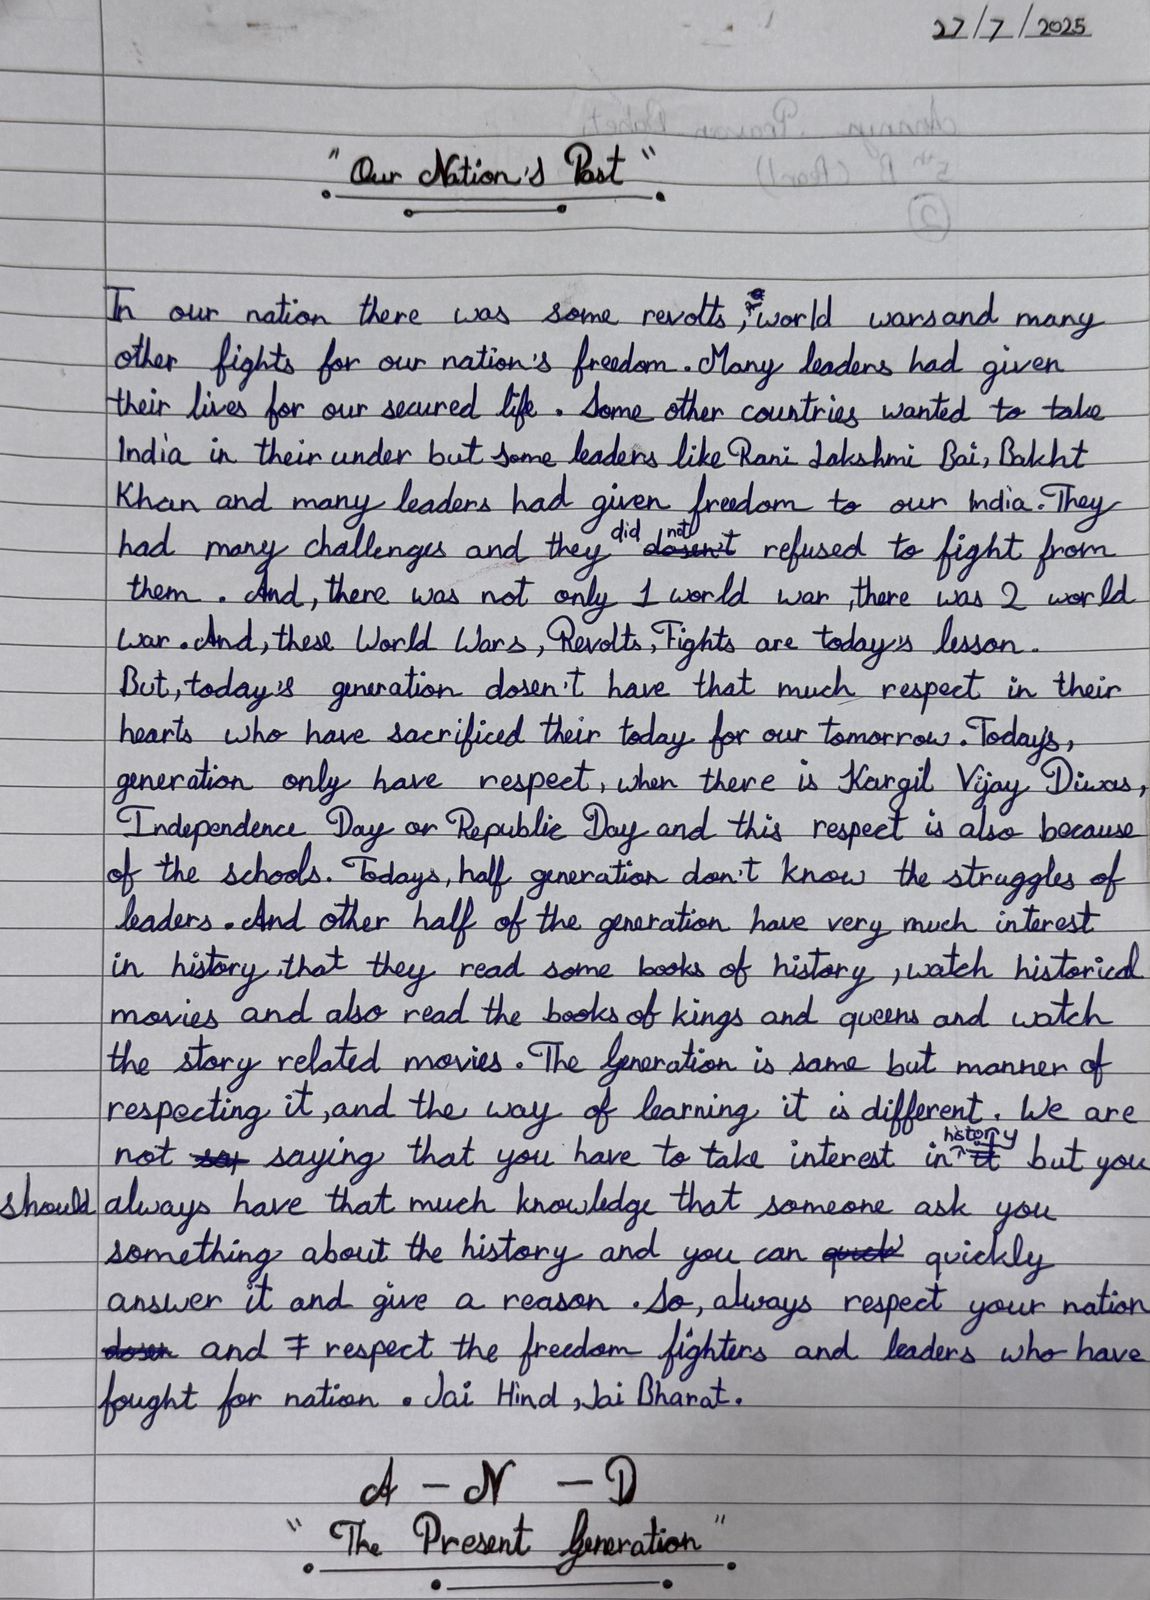 27/7/2025
"Our Nation's Past"
In our nation there was some revolts, world wars and many
other fights for our nation's freedom. Many leaders had given
their lives for our secured life. Some other countries wanted to take
India in their under but some leaders like Rani Lakshmi Bai, Bakht
Khan and many leaders had given freedom to our India. They
had many challenges and they did not refused to fight from
them. And, there was not only 1 world war, there was 2 world
war. And, these World Wars, Revolts, Fights are today's lesson.
But, today's generation dosen't have that much respect in their
hearts who have sacrificed their today for our tomorrow. Todays,
generation only have respect, when there is Kargil Vijay Diwas,
Independence Day or Republic Day and this respect is also because
of the schools. Todays, half generation don't know the struggles of
leaders. And other half of the generation have very much interest
in history, that they read some books of history, watch historical
movies and also read the books of kings and queens and watch
the story related movies. The Generation is same but manner of
respecting it, and the way of learning it is different. We are
not saying that you have to take interest in history but you
should always have that much knowledge that someone ask you
something about the history and you can quickly
answer it and give a reason. So, always respect your nation
and respect the freedom fighters and leaders who have
fought for nation. Jai Hind, Jai Bharat.
A - N - D
"The Present Generation"